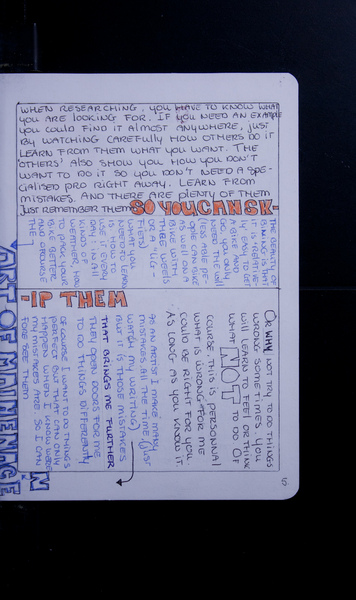 WHEN RESEARCHING, YOU HAVE TO KNOW WHAT
YOU ARE LOOKING FOR. IF YOU NEED AN EXAMPLE
YOU COULD FIND IT ALMOST ANYWHERE, JUST
BY WATCHING CAREFULLY HOW OTHERS DO IT
LEARN FROM THEM WHAT YOU WANT. THE
'OTHERS' ALSO SHOW YOU HOW YOU DON'T
WANT TO DO IT SO YOU DON'T NEED A SPE-
CIALISED PRO RIGHT AWAY. LEARN FROM
MISTAKES. AND THERE ARE PLENTY OF THEM
JUST REMEMBER THEM SO YOU CAN SK-
-IP THEM
THE BEAUTY OF
BIKING IS THAT
IT IS RELATIVE-
LY EASY TO GET
A BIKE AND
YOU ONLY
NEED THE WILL
LESS ABLE PE-
OPLE CAN BIKE
AS WELL ON A
BIKE WITH
THREE WEELS
OR A LIG-
FIETS
WHAT YOU
NEED TO LEARN
IS HOW TO
USE IT EVERY
DAY: IN ALL
KIND OF
WEATHER, HOW
TO PACK YOUR
BIKE BETTER
OR WHY NOT TRY TO DO THINGS
WRONG SOMETIMES. YOU
WILL LEARN TO FEEL OR THINK
WHAT NOT TO DO. OF
COURSE, THIS IS PERSONNAL
WHAT IS WRONG FOR ME
COULD BE RIGHT FOR YOU.
AS LONG AS YOU KNOW IT.
AS AN ARTIST I MAKE MANY
MISTAKES ALL THE TIME (JUST
WATCH MY WRITING)
BUT IT IS THOSE MISTAKES
THAT BRINGS ME FURTHER
THEY OPEN DOORS FOR ME
TO DO THINGS DIFFERENTLY
OF COURSE I WANT TO DO THINGS
PERFECT BUT IT CAN ONLY
HAPPEN WHEN I KNOW WERE
MY MISTAKES ARE SO I CAN
FORE SEE THEM
ART OF
5.